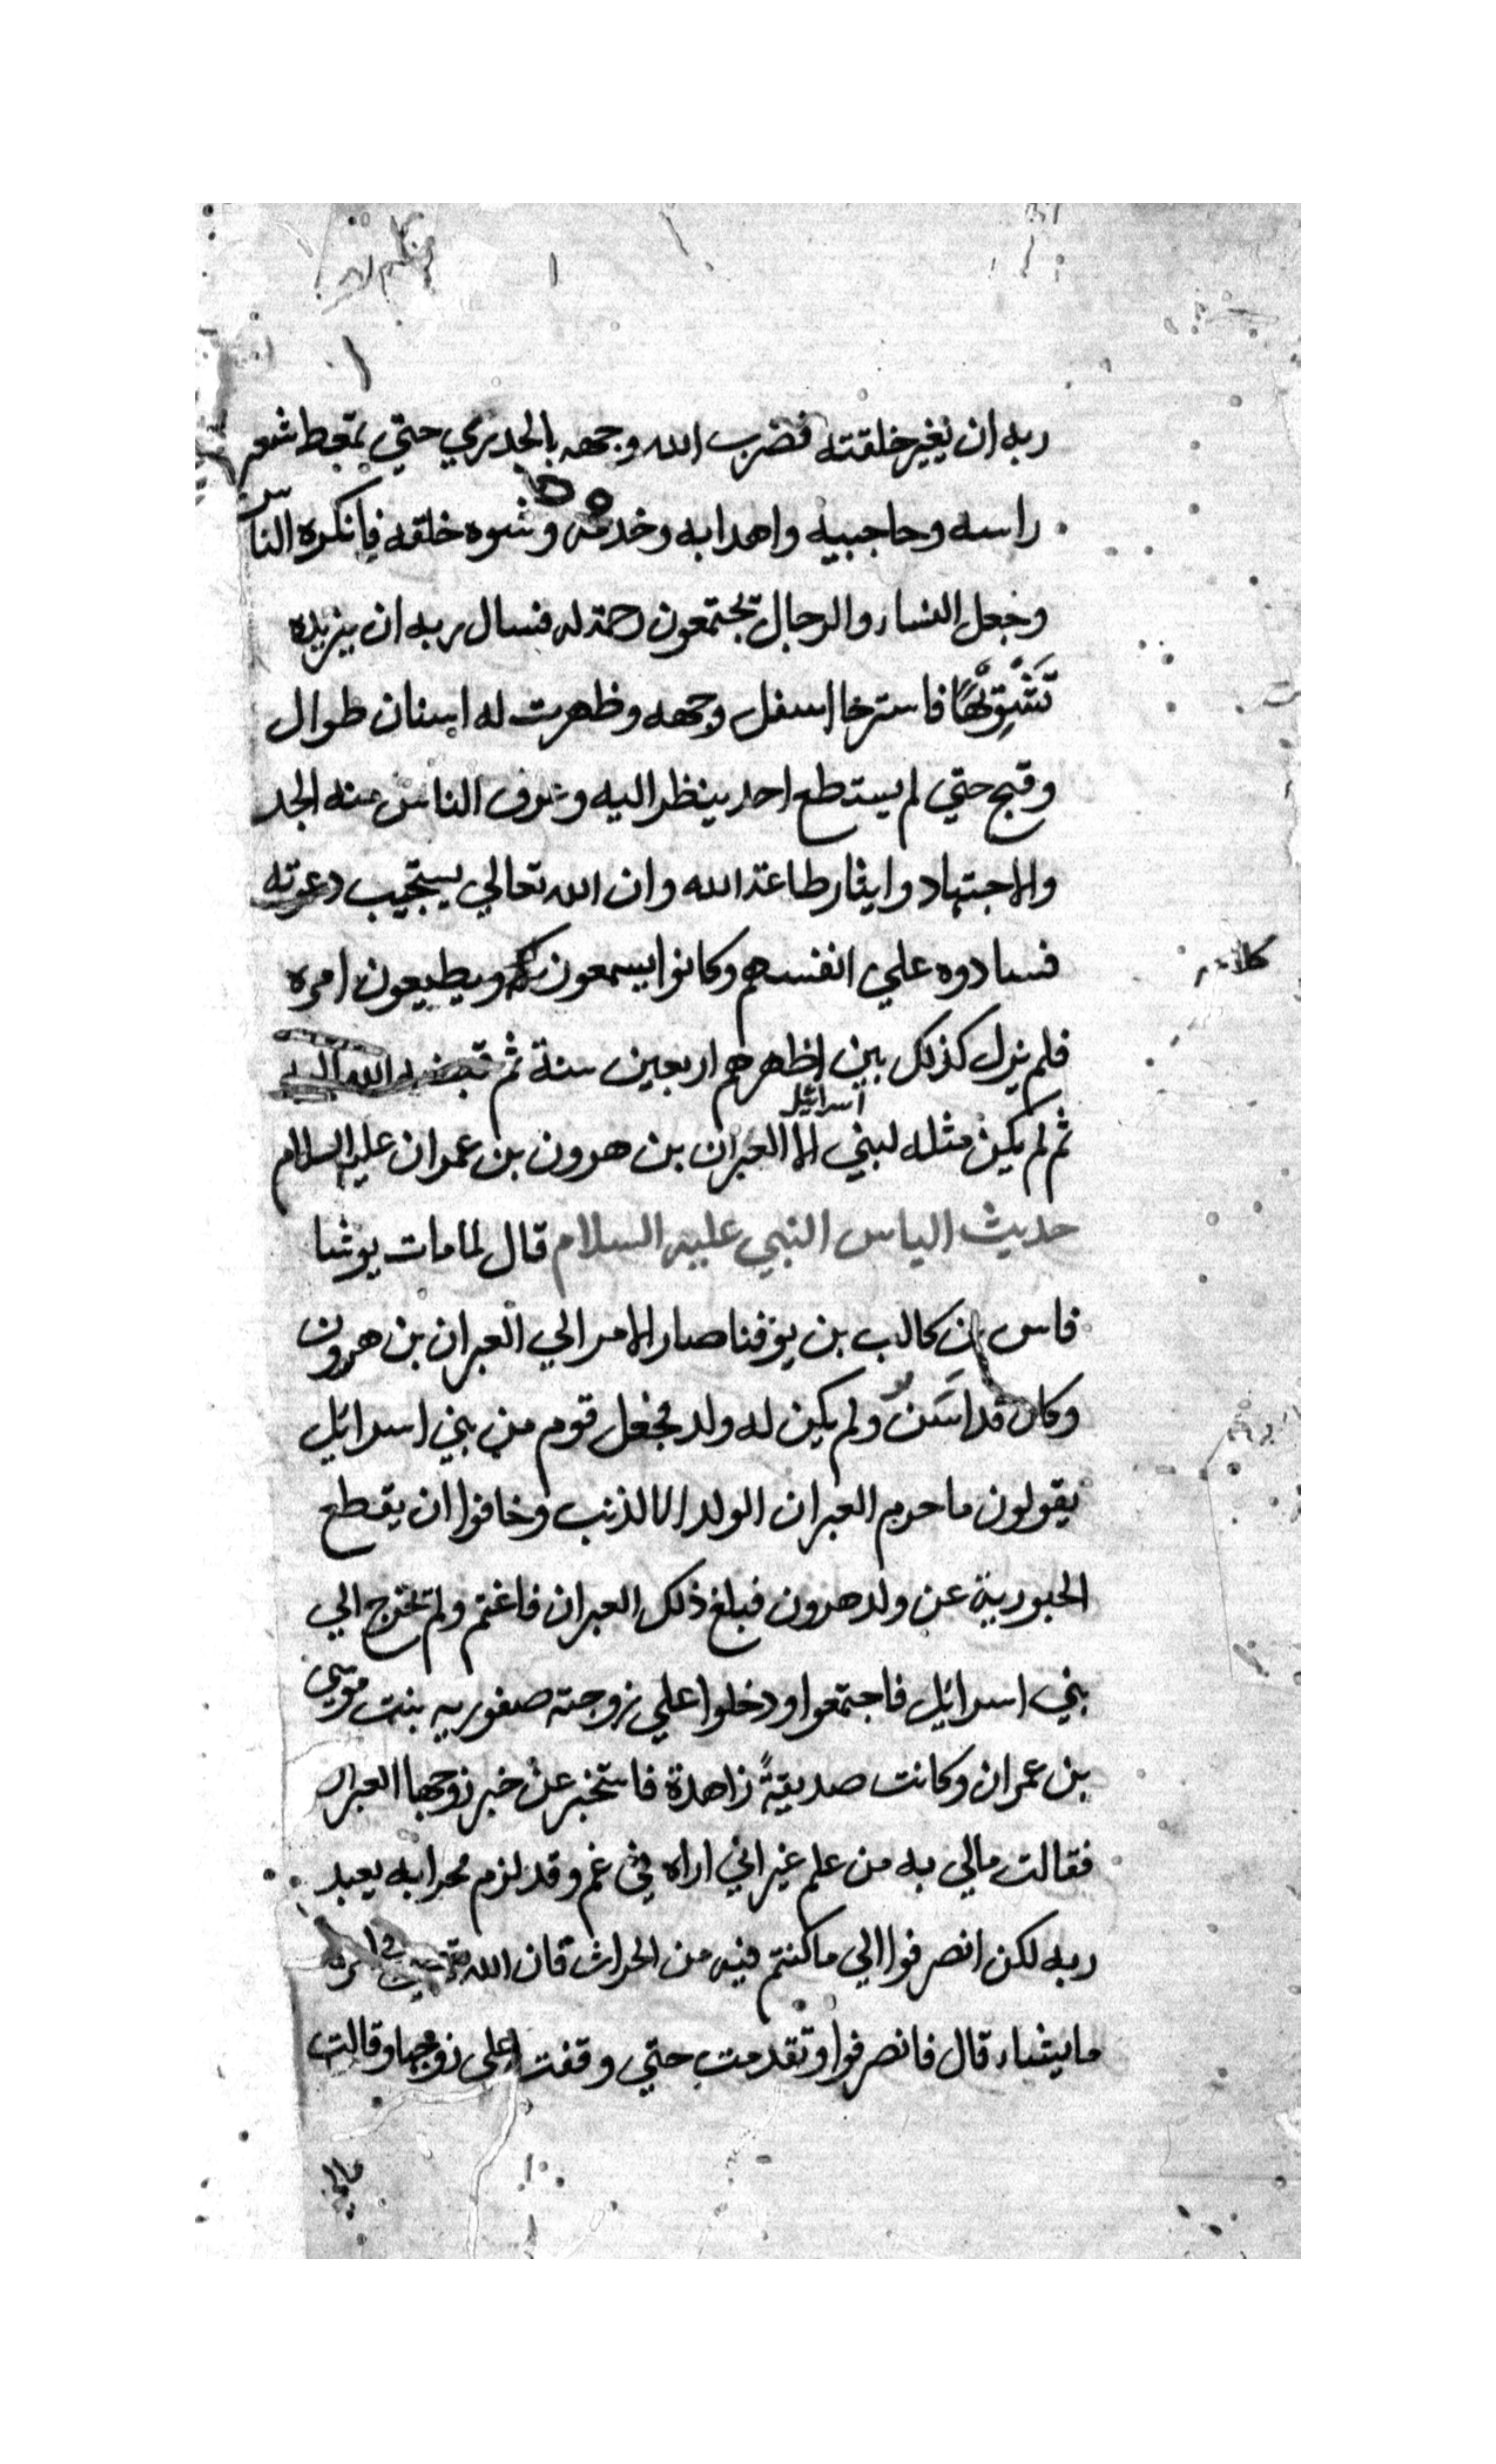 ربه ان يغير خلقته فضرب الله وجهه بالجدري حتي تمعط شعر
راسه وحاجبيه واهدابه وخده وشوه خلقه فانكره الناس
وجعل النساء والرجال يجتمعون رحمة له فسال ربه ان يزيده
تشويهًا فاسترخا اسفل وجهه وظهرت له اسنان طوال
وقبح حتي لم يستطع احد ينظر اليه وعرف الناس منه الجد
والاجتهاد وايثار طاعة الله وان الله تعالي يستجيب دعوته
فسادوه علي انفسهم وكانوا يسمعون ويطيعون امره
كلامه
فلم يزل كذلك بين اظهرهم اربعين سنة ثم قبضه الله اليه
ثم لم يكن مثله لبني اسرائيل الا العبران بن هرون بن عمران عليه السلام
حديث الياس النبي عليه السلام قال لما مات يوشا
فاس بن كالب بن يوفنا صار الامر الي العبران بن هرون
وكان قد اسن ولم يكن له ولد فجعل قوم من بني اسرائيل
يقولون ما حرم العبران الولد الا لذنب وخافوا ان يقطع
الحبورية عن ولد هرون فبلغ ذلك العبران فاغتم ولم يخرج الي
بني اسرائيل فاجتمعوا ودخلوا علي زوجته صفوريه بنت موسي
بن عمران وكانت صديقةً زاهدة فاستخبر عن خبر زوجها العبران
فقالت مالي به من علم غير اني اراه في غم وقد لزم محرابه يعبد
ربه لكن انصرفوا الي ما كنتم فيه من الحراث فان الله
ما يشاء قال فانصرفوا وتقدمت حتي وقفت علي زوجها وقالت